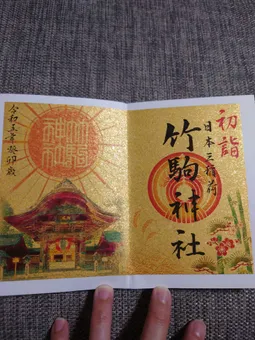 初詣
日本三稲荷
竹駒神社
令和五年癸卯歳
竹駒神社